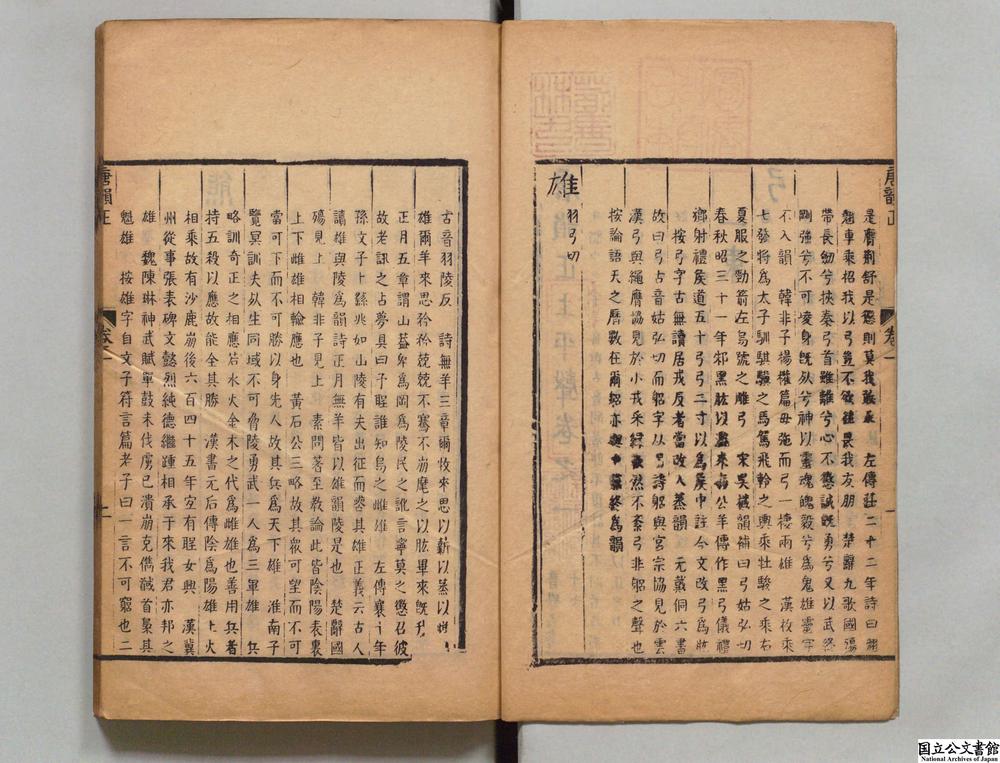 唐韻正
卷一
是膺荆舒是懲則莫我敢承 左傳莊二十二年詩曰翹
翹車乘招我以弓豈不欲往畏我友朋 楚辭九歌國殤
帶長劒兮挾秦弓首雖離兮心不懲誠既勇兮又以武終
剛強兮不可凌身既死兮神以靈魂魄毅兮為鬼雄靈字
不入韻 韓非子揚權篇毋弛而弓一棲兩雄 漢枚乘
七發將為太子馴騏驥之馬駕飛軨之輿乘牡駿之乘右
夏服之勁箭左烏號之雕弓 宋吳棫韻補曰弓姑弘切
春秋昭三十一年邾黑肱以濫來奔公羊傳作黑弓儀禮
鄉射禮侯道五十弓弓二寸以為侯中註今文改弓為肱
按弓字古無讀居戎反者當改入蒸韻 元戴侗六書
故曰弓古音姑弘切而躬字从弓詩躬與宮宗協見於雲
漢弓與繩膺協見於小戎采綠截然不紊弓非躬之聲也
按論語天之曆數在爾躬亦與中窮終為韻
雄 羽弓切
古音羽陵反 詩無羊三章爾牧來思以薪以蒸以雌以
雄爾羊來思矜矜兢兢不騫不崩麾之以肱畢來既升
正月五章謂山蓋卑為岡為陵民之訛言寧莫之懲召彼
故老訊之占夢具曰予聖誰知烏之雌雄 左傳襄十年
孫文子卜繇兆如山陵有夫出征而喪其雄正義云古人
讀雄與陵為韻詩正月無羊皆以雄韻陵是也 楚辭國
殤見上 韓非子見上 素問著至教論此皆陰陽表裏
上下雌雄相輸應也 黃石公三略故其眾可望而不可
當可下而不可勝以身先人故其兵為天下雄 淮南子
覽冥訓夫死生同域不可脅陵勇武一人為三軍雄 兵
略訓奇正之相應若水火金木之代為雌雄也善用兵者
持五殺以應故能全其勝 漢書元后傳陰為陽雄土火
相乘故有沙鹿崩後六百四十五年宜有聖女興 漢冀
州從事張表碑文懿烈純德繼踵相承于來我君亦邦之
雄 魏陳琳神武賦單鼓未伐虜已潰崩克儁馘首梟其
魁雄 按雄字自文子符言篇老子曰一言不可窮也二
唐韻正
卷之一
十
国立公文書館
National Archives of Japan